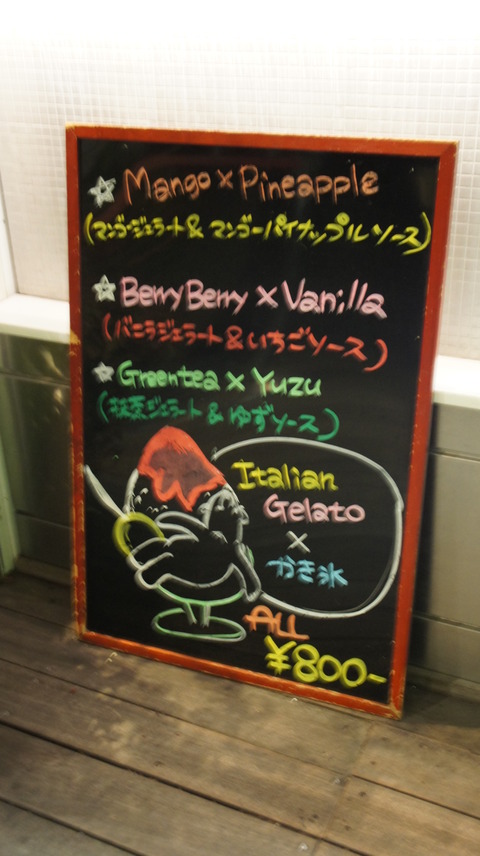 ☆ Mango × Pineapple
(マンゴージェラート & マンゴーパイナップルソース)
☆ BerryBerry × Vanilla
(バニラジェラート & いちごソース)
☆ Greentea × Yuzu
(抹茶ジェラート & ゆずソース)
Italian
Gelato
×
かき氷
ALL
¥800-